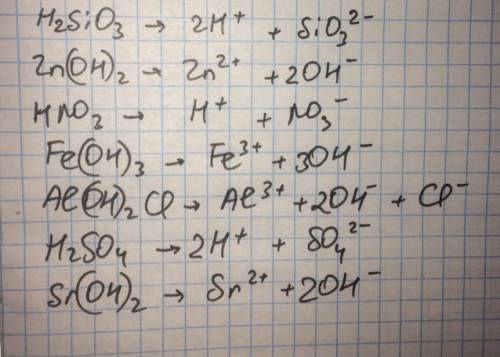 H₂SiO₃ → 2H⁺ + SiO₃²⁻
Zn(OH)₂ → Zn²⁺ + 2OH⁻
HNO₃ → H⁺ + NO₃⁻
Fe(OH)₃ → Fe³⁺ + 3OH⁻
Al(OH)₂Cl → Al³⁺ + 2OH⁻ + Cl⁻
H₂SO₄ → 2H⁺ + SO₄²⁻
Sr(OH)₂ → Sr²⁺ + 2OH⁻